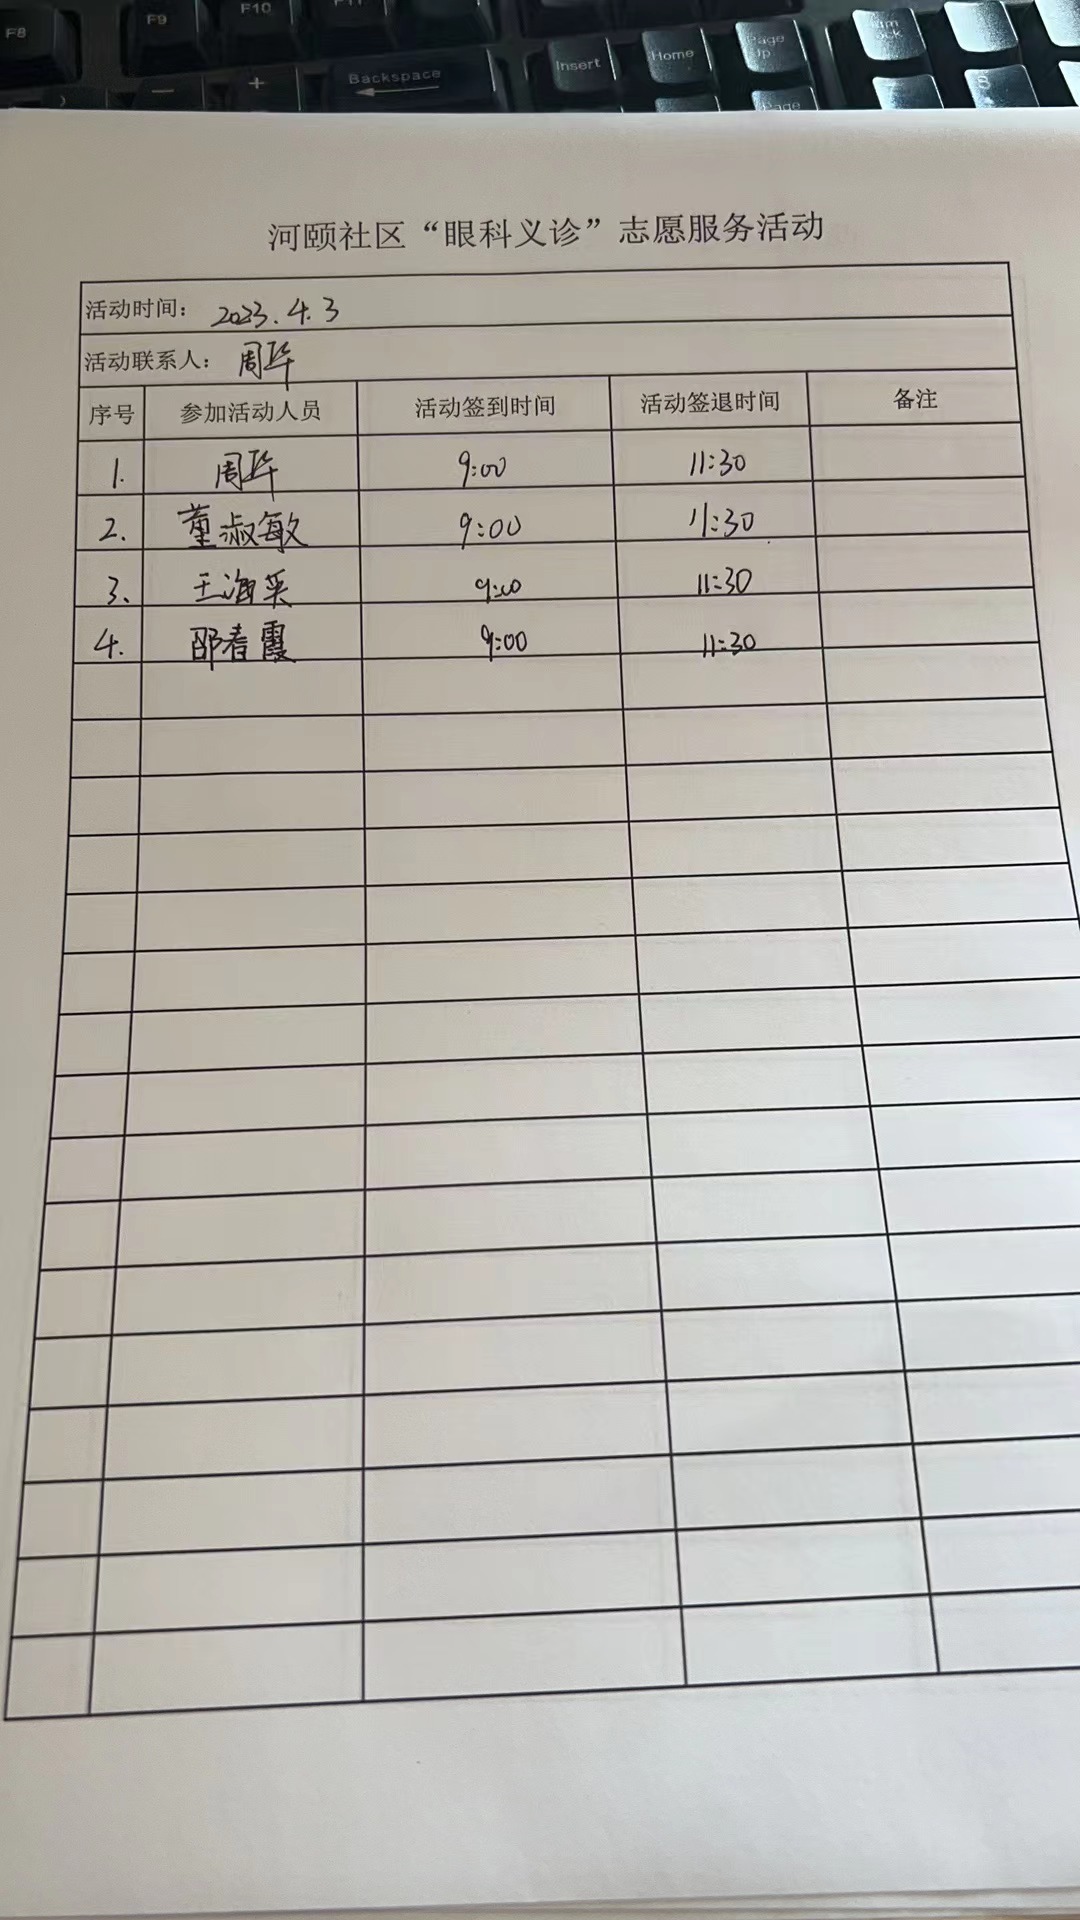 F8 F9 F10 F11
Backspace Insert Home Page Up Num Lock
Page 8
河颐社区“眼科义诊”志愿服务活动
活动时间： 2023.4.3
活动联系人： 周华
序号 参加活动人员 活动签到时间 活动签退时间 备注
1. 周华 9:00 11:30
2. 董淑敏 9:00 11:30
3. 王海英 9:00 11:30
4. 邵春霞 9:00 11:30